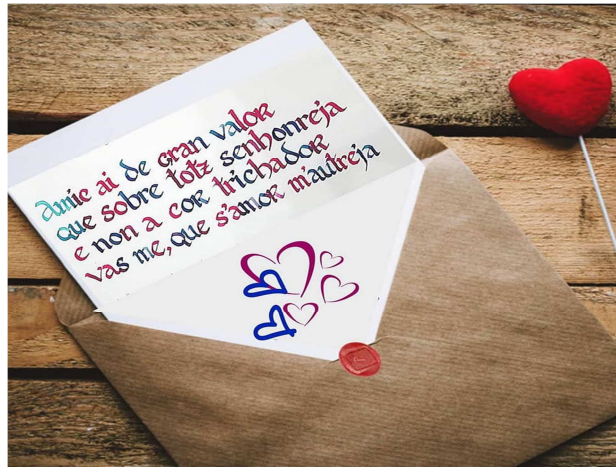 Amic ai de gran valor
que sobre totz senhonreja
e non a cor trichador
vas me, que s'amor m'autreja